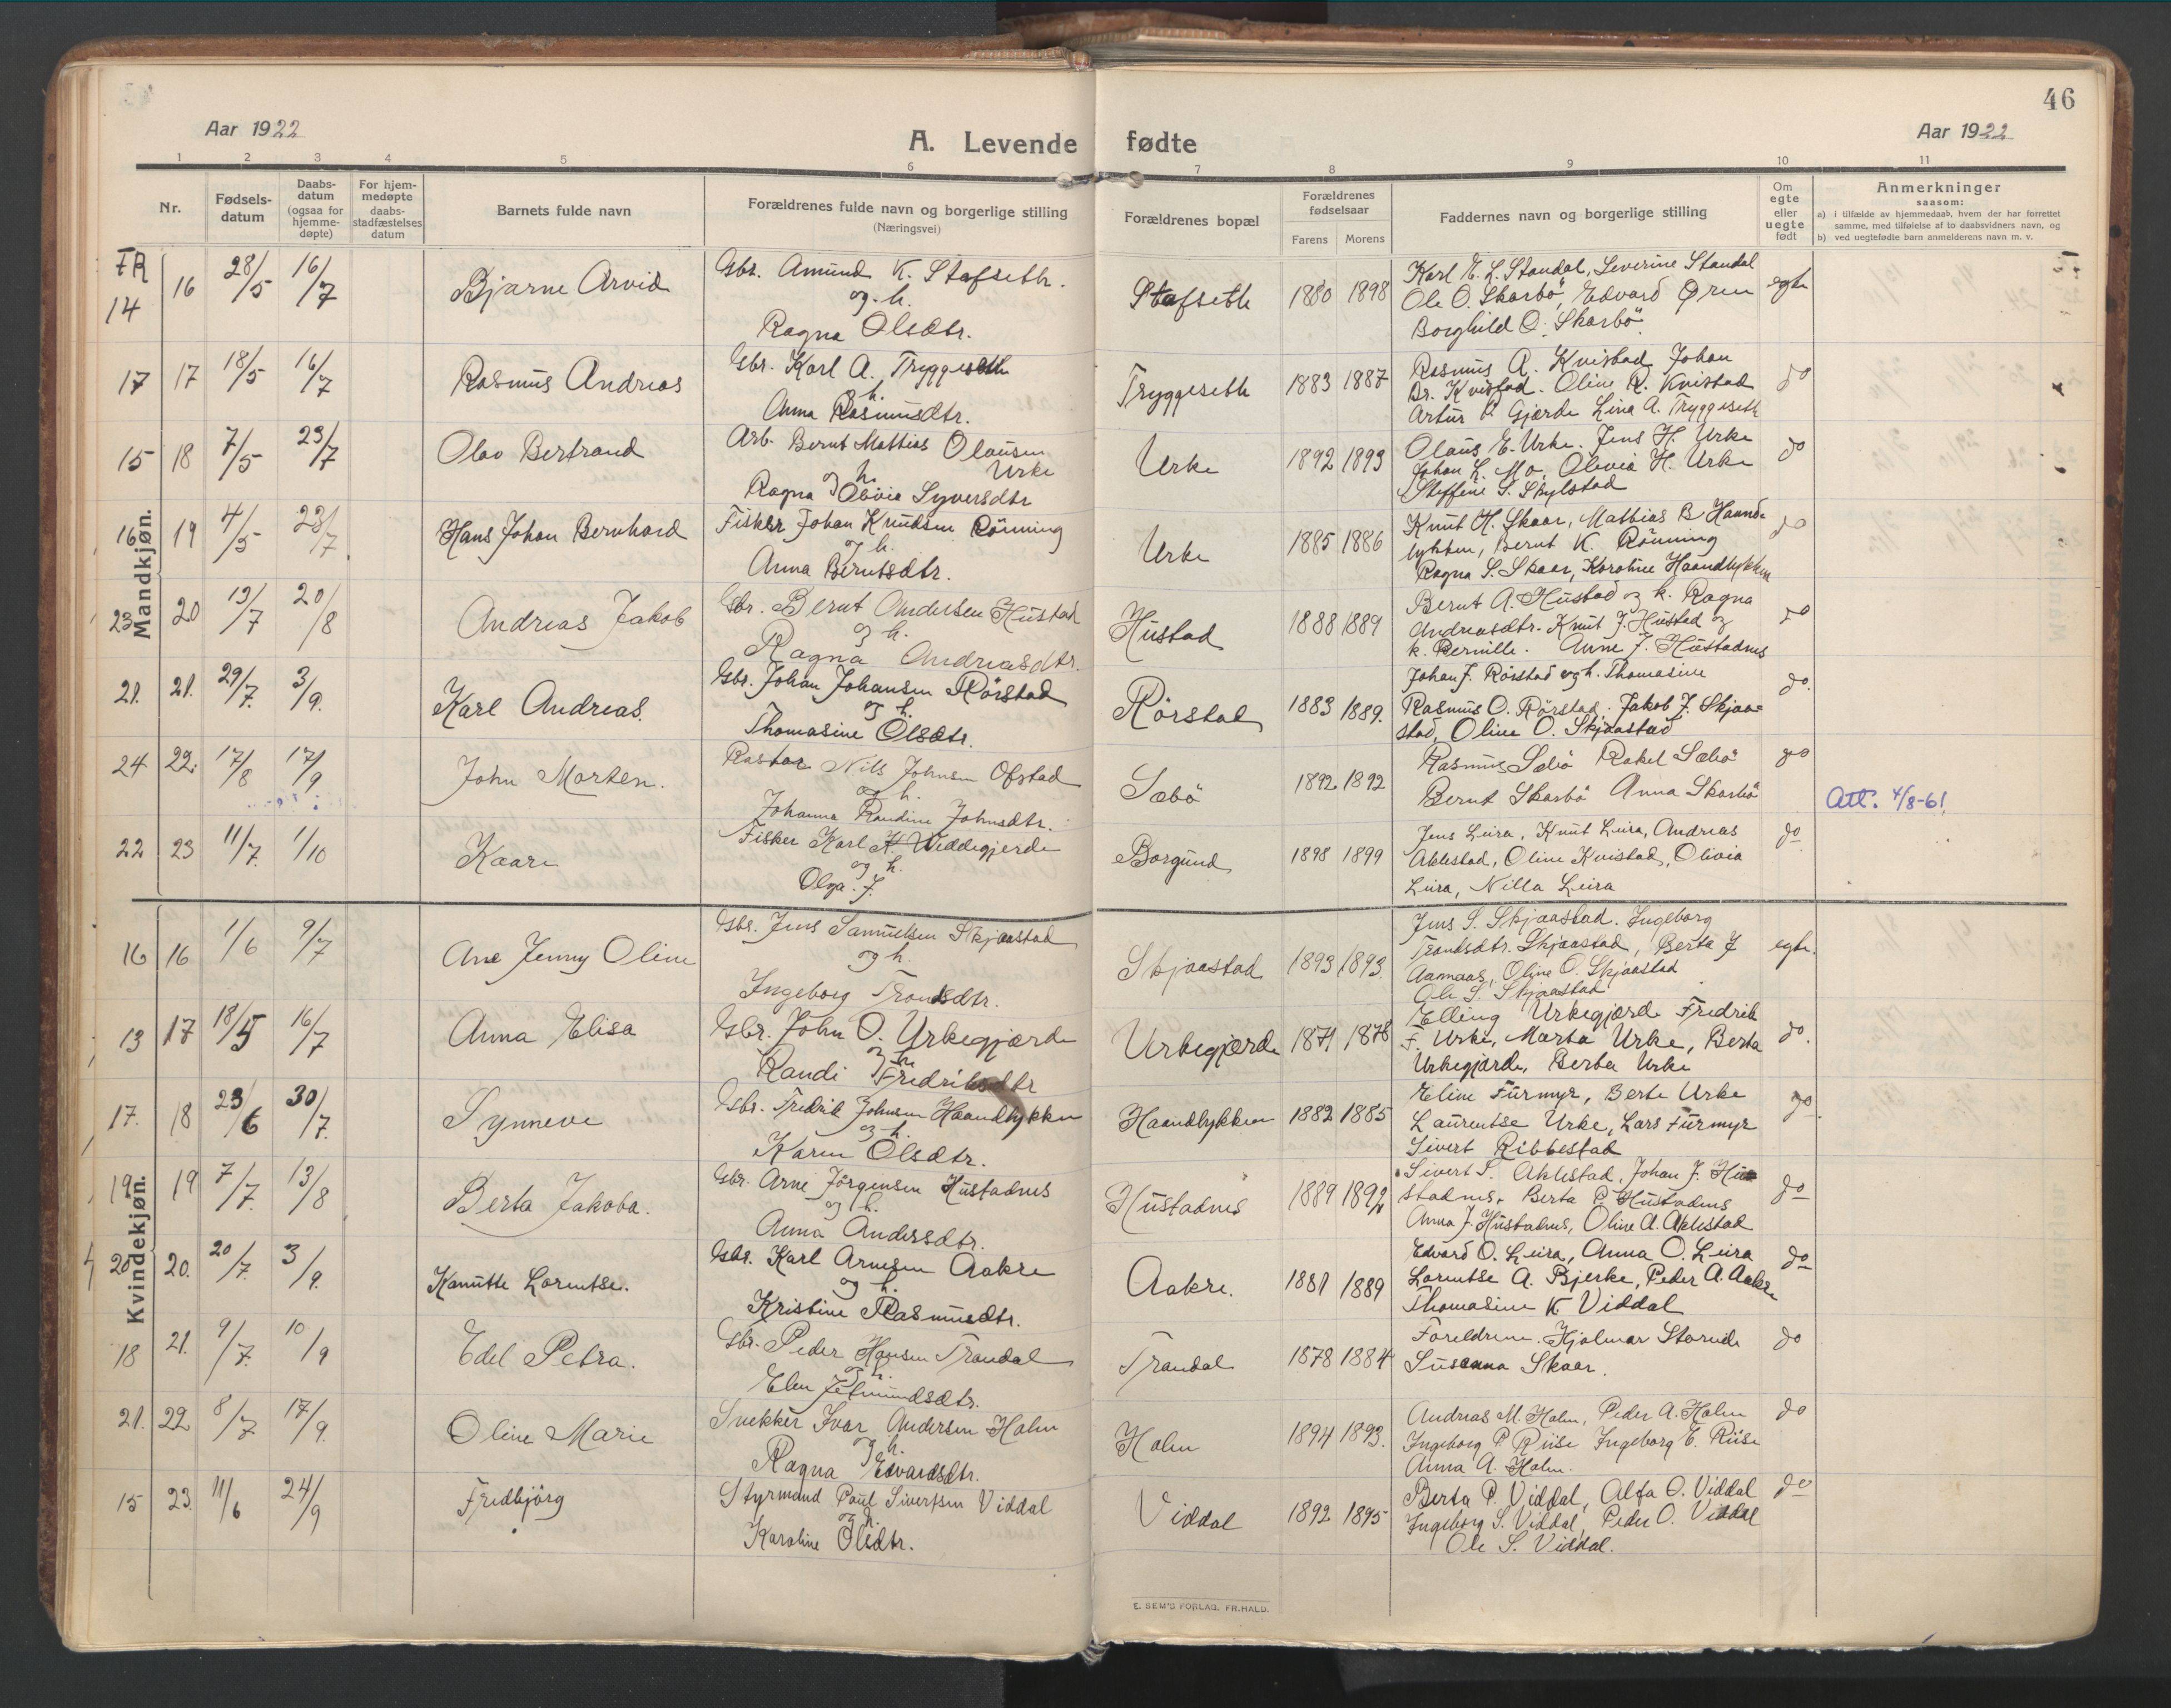 46
Aar 1922
A. Levende fødte
Aar 1922
1 2 3 4 5 6 7 8 9 10 11
Nr.
Fødsels-
datum
Daabs-
datum
(ogsaa for
hjemme-
døpte)
For hjem-
medøpte
daabs-
stadfæstelses
datum
Barnets fulde navn
Forældrenes fulde navn og borgerlige stilling
(Næringsvei)
Forældrenes bopæl
Forældrenes
fødselsaar
Farens Morens
Faddernes navn og borgerlige stilling
Om
egte
eller
uegte
født
Anmerkninger
saasom:
a) i tilfælde av hjemmedaab, hvem der har forrettet
samme, med tilføielse af to daabsvidners navn, og
b) ved uegtefødte barn anmelderens navn m. v.
Mandkjøn.
FR
14 16 28/5 16/7 Bjarne Arvid
Gbr. Amund K. Stafseth.
og h.
Ragna Olsdtr.
Stafseth 1880 1898
Karl E. L. Standal, Severine Standal
Ole O. Skarbö, Edvard Øren
Borghild O. Skarbö.
egte
17 17 18/5 16/7 Rasmus Andreas
Gbr. Karl A. Tryggeseth
og h.
Anna Rasmusdtr.
Tryggeseth 1883 1887
Rasmus A. Kvistad Johan
Br. Kvistad. Oline R. Kvistad
Artur P. Gjærde Lina A. Tryggeseth
do
15 18 7/5 23/7 Olav Bertrand
Arb. Bernt Mattias Olausen
Urke
og h.
Ragna Olivia Syversdtr
Urke 1892 1893
Olaus E. Urke. Jens H. Urke
Johan L. Mo, Olivia H. Urke
Steffine S. Skylstad
do
16 19 4/5 23/7 Hans Johan Bernhard
Fisker Johan Knudsen Rönning
og h.
Anna Berntsdtr.
Urke 1885 1886
Knut H. Skaar, Mathias B Haand-
lykken, Bernt K. Rönning
Ragna S. Skaar, Karoline Haandlykken
do
23 20 13/7 20/8 Andreas Jakob
Gbr. Bernt Andersen Hustad
og h.
Ragna Andreasdtr.
Hustad 1888 1889
Bernt A. Hustad og k. Ragna
Andreasdtr. Knut J. Hustad og
k. Pernille. Anne J. Hustadnes
do
21. 21. 29/7. 3/9. Karl Andreas.
Gbr. Johan Johansen Rörstad
og h.
Thomasine Olsdtr.
Rörstad 1883 1889.
Johan J. Rörstad og h. Thomasine
Rasmus O. Rörstad. Jakob J. Skjaa-
stad, Oline O. Skjaastad
do.
24 22. 17/8 17/9 John Morten.
Pastor Nils Johnsen Ofstad
og h.
Johanna Randine Johnsdtr.
Sæbö 1892 1892
Rasmus Sæbö Rakel Sæbö
Bernt Skarbö Anna Skarbö
do
Att. 4/8-61
22 23 11/7. 1/10 Kaare
Fisker Karl H. Widdegjerde
og h.
Olga J.
Borgund 1898 1899
Jens Leira, Knut Leira, Andreas
Aklestad, Oline Kvistad, Olivia
Leira, Nilla Leira
do
Kvindekjøn.
16 16 1/6 9/7 Ane Jenny Oline
Gbr. Jens Samuelsen Skjaastad
og h.
Ingeborg Trondsdtr.
Skjaastad 1893 1893.
Jens S. Skjaastad. Ingeborg
Trondsdtr. Skjaastad, Berta J
Aamaas, Oline O. Skjaastad
Ole S. Skjaastad
egte.
13 17 18/5 16/7 Anna Elisa
Gbr. John O. Urkegjærde
og h.
Randi Fredriksdtr
Urkegjærde 1871 1878
Elling Urkegjærde Fredrik
F. Urke, Marta Urke, Berta
Urkegjærde, Berta Urke
do.
17. 18 23/6 30/7. Synneve
Gbr. Fredrik Johnsen Haandlykken
og h.
Karen Olsdtr.
Haandlykken 1882 1885
Eline Furmyr, Berte Urke
Laurentse Urke, Lars Furmyr
Sivert Ribbestad
do.
19 19 7/7. 13/8 Berta Jakoba.
Gbr. Arne Jörgensen Hustadnes
og h.
Anna Andersdtr.
Hustadnes 1889 1892
Sivert S. Aklestad, Johan J. Hu-
stadnes. Berta P. Hustadnes
Anna J. Hustadnes, Oline A. Aklestad
do
20 20. 20/7. 3/9. Kanutte Lorentse.
Gbr. Karl Arnesen Aakre
og h.
Kristine Rasmusdtr.
Aakre. 1881 1889
Edvard O. Leira, Anna O. Leira
Lorentse A. Bjerke, Peder A. Aakre
Thomasine K Viddal
do
18 21. 9/7. 10/9 Edel Petra.
Gbr. Peder Hansen Trandal
og h.
Elen Jetmundsdtr.
Trandal 1878 1884
Foreldrene. Hjalmar Storeide
Susanna Skaar.
do
21. 22 8/7 17/9. Oline Marie
Snekker Ivar Andersen Holm
og h.
Ragna Edvardsdtr.
Holm 1894 1893.
Andreas M. Holm, Peder A. Holm
Ingeborg P. Riise Ingeborg E. Riise
Anna A. Holm.
do
15 23. 11/6 24/9 Fredbjörg
Styrmand Paul Sivertsen Viddal
og h.
Karoline Olsdtr.
Viddal 1892 1895
Berta P. Viddal, Alfa O. Viddal
Ingeborg S. Viddal, Peder O. Viddal
Ole S. Viddal.
do
E. SEM'S FORLAG, FR.HALD.